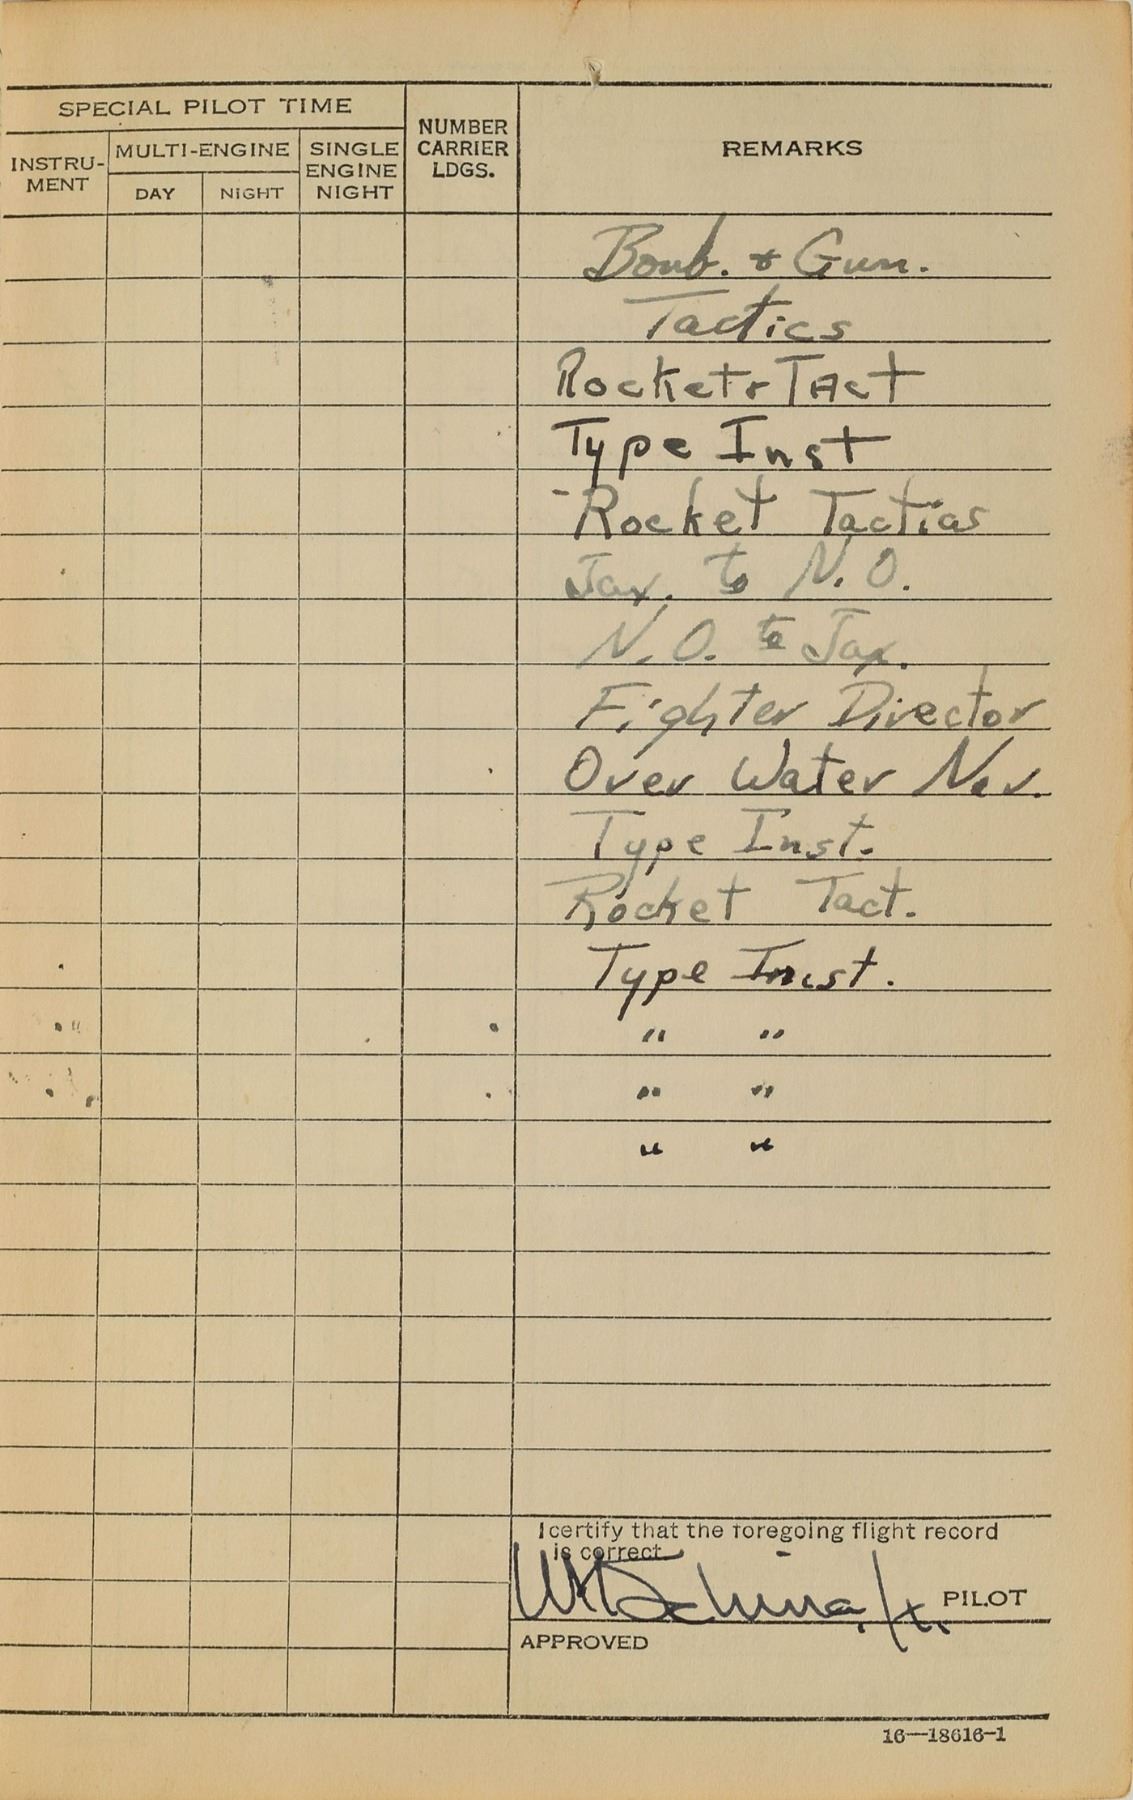 SPECIAL PILOT TIME
INSTRU-
MENT
MULTI-ENGINE
DAY
NIGHT
SINGLE
ENGINE
NIGHT
NUMBER
CARRIER
LDGS.
REMARKS
Bomb. & Gun.
Tactics
Rocket & TAct
Type Inst
Rocket Tactias
Jax. to N.O.
N.O. to Jax.
Fighter Director
Over Water Nav.
Type Inst.
Rocket Tact.
Type Inst.
" "
" "
" "
I certify that the foregoing flight record
is correct
Jr. PILOT
APPROVED
16—18616-1